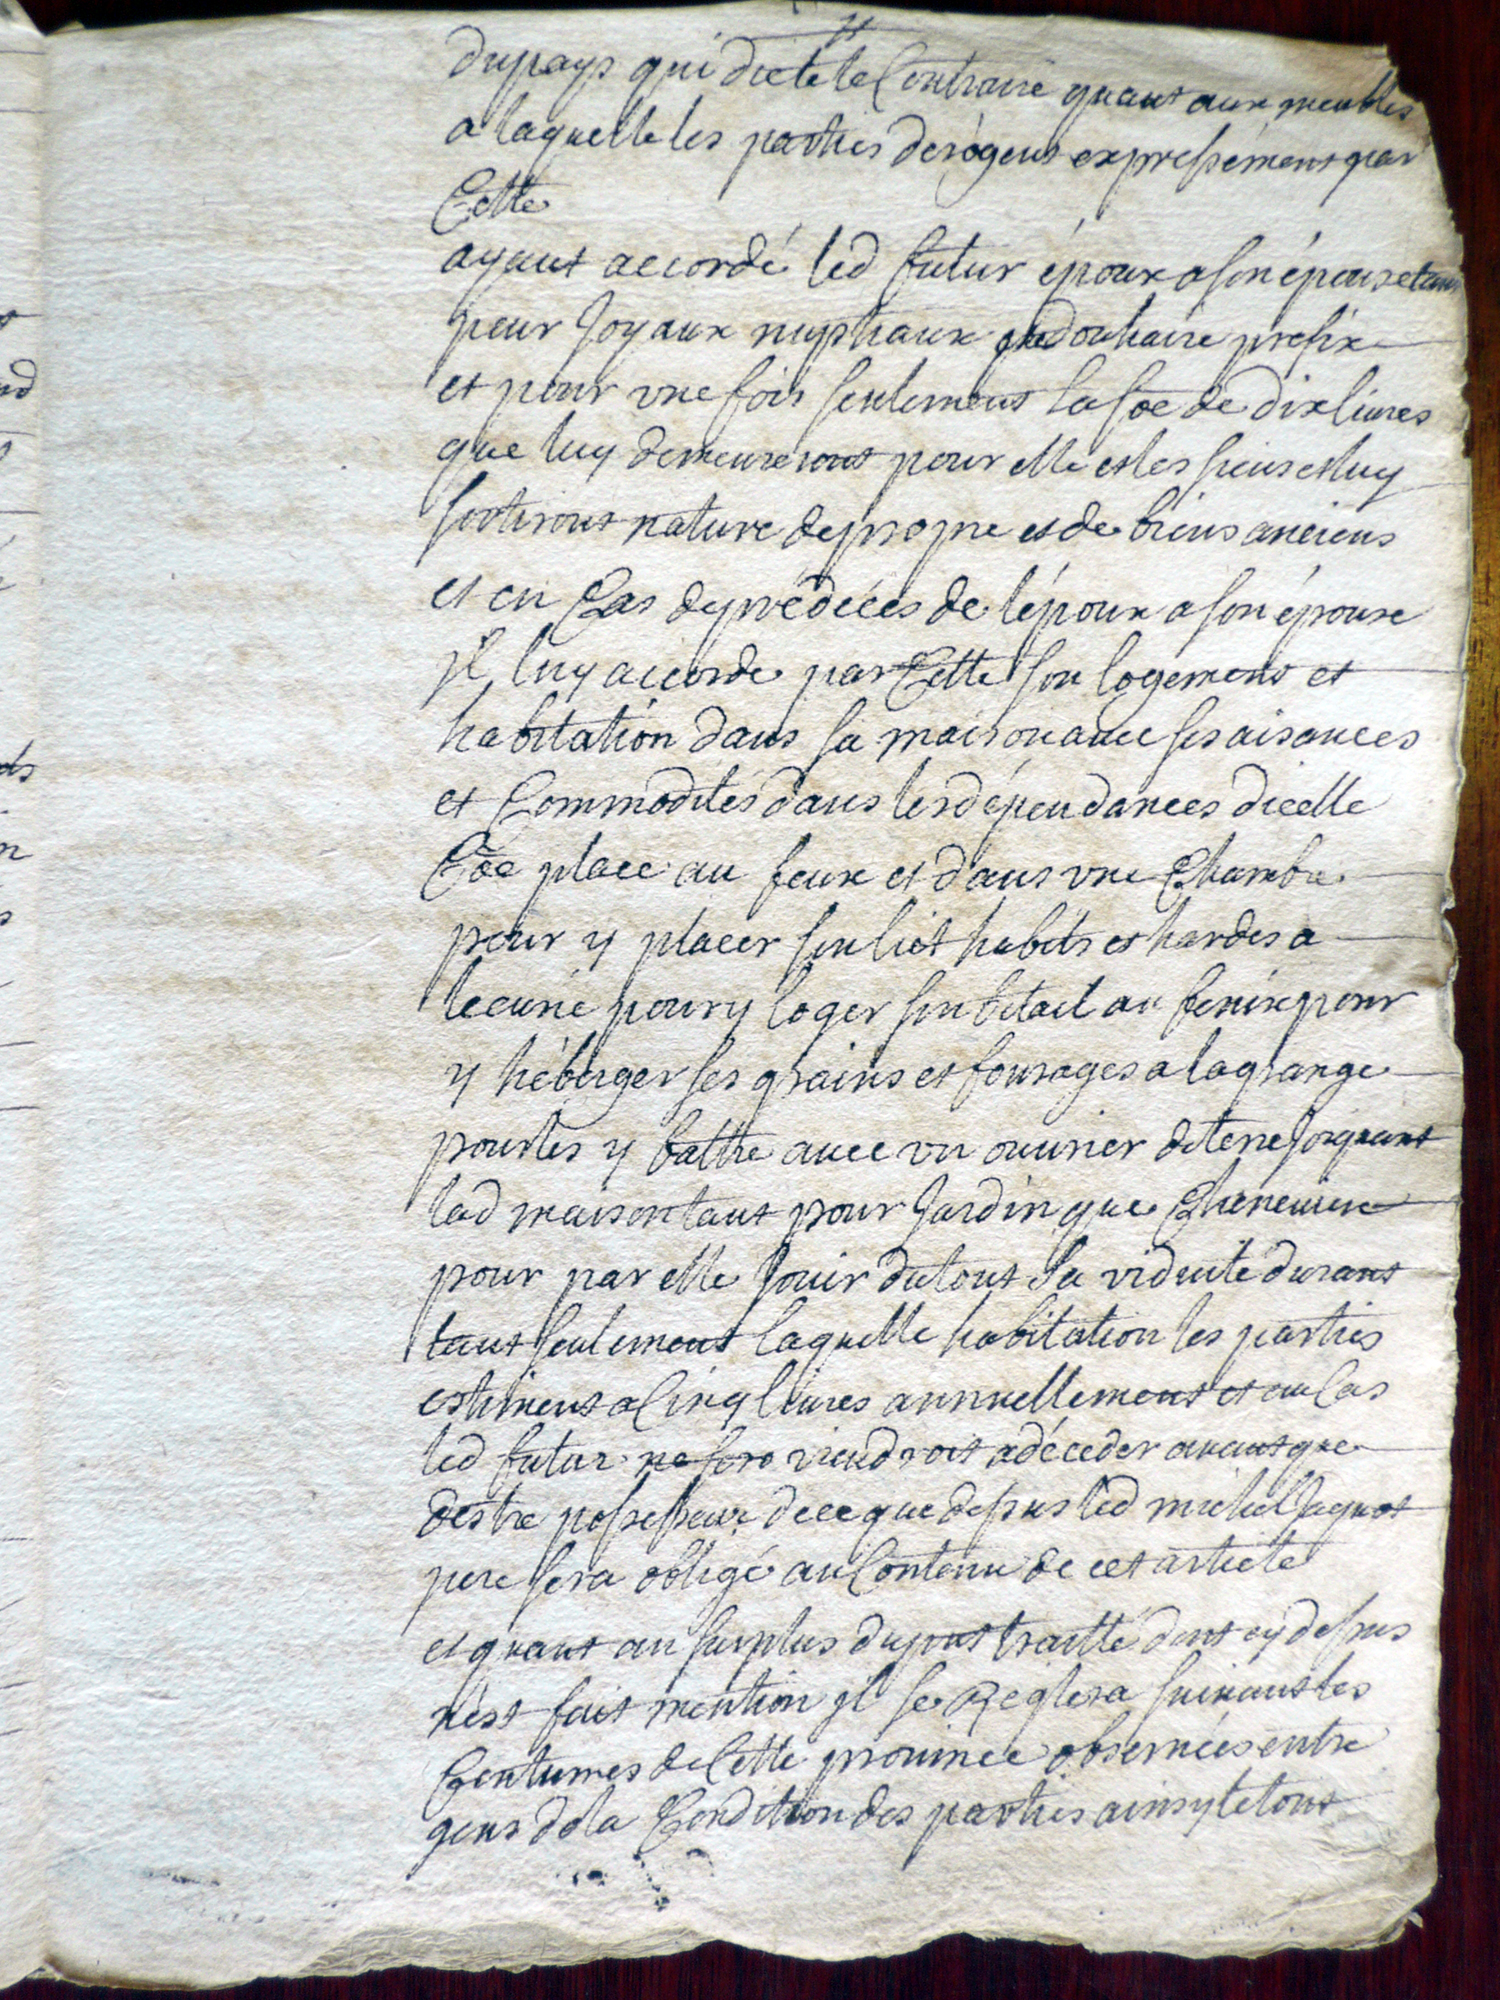 du pays qui dicte le Contraire quant aux meubles
a laquelle les parties derogent expressément par
Cette
ayant accordé led futur époux a son épouse tant
pour Joyaux nuptiaux que douhaire prefix
et pour vne fois seulement la sõe de dix liures
que luy demeureront pour elle et les siens et luy
sortiront nature de propre et de biens anciens
et en Cas de prédécés de l'époux a son épouse
jl luy accorde par Cette son logement et
habitation dans sa maison auec ses aisances
et Commodités dans les dépendances dicelle
Cõe place au feux et dans vne Chambre
pour y placer son lict habits et hardes a
lecurie pour y loger son bétail au feni pour
y héberger ses grains et fourages a la grange
pour les y battre auec vn ouurier de terre Joignant
lad maison tant pour Jardin que Cheneuiere
pour par elle Jouir du tout Sa viduité durant
tant seulement laquelle habitation les parties
estiment a Cinq liures annuellement et au Cas
led futur viendroit a déceder auant que
destre possesseur de ce que dessus led michel Jaquot
pere sera obligé au Contenu de cet article
et quant au surplus du pnt traitté dont cy dessus
nést fait mention jl se Reglera suiuant les
Coutumes de Cette prouince obseruées entre
gens de la Condition des parties ainsy le tout